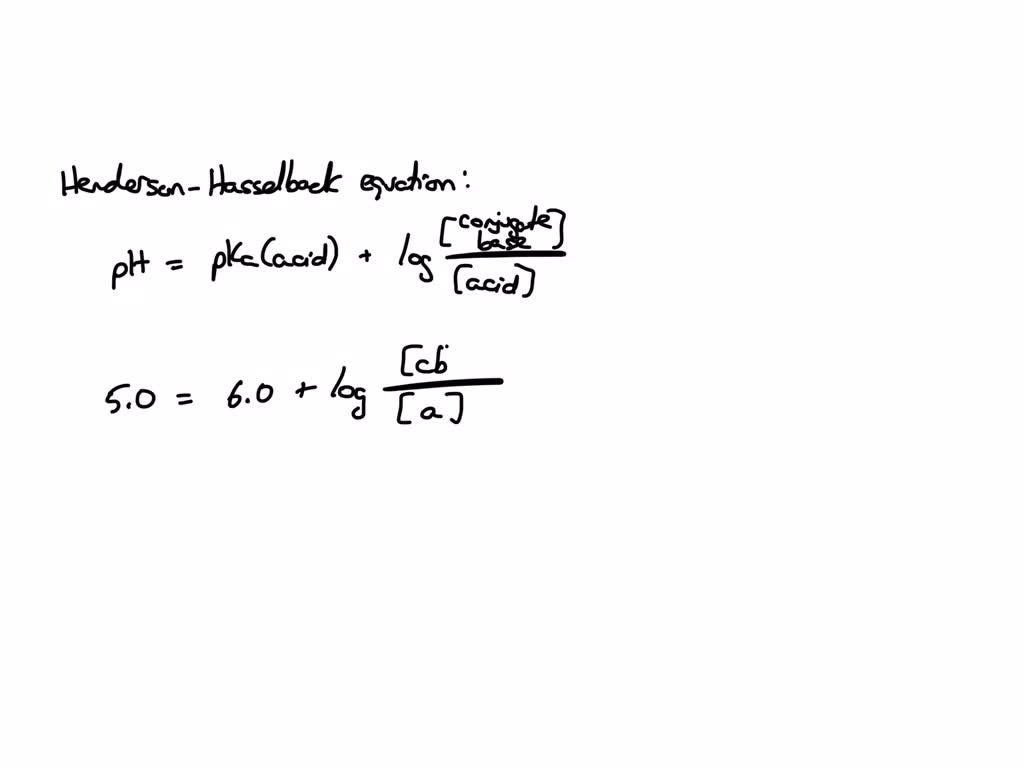 Henderson-Hasselback equation:
pH = pKa(acid) + log [conjugate base] / [acid]
5.0 = 6.0 + log [cb / [a]